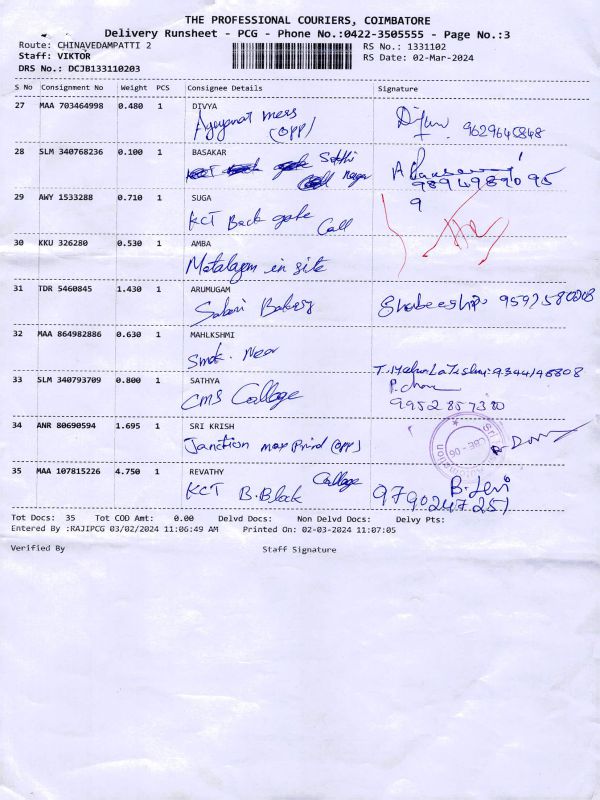 THE PROFESSIONAL COURIERS, COIMBATORE
Delivery Runsheet - PCG - Phone No.:0422-3505555 - Page No.:3
Route: CHINAVEDAMPATTI 2 RS No.: 1331102
Staff: VIKTOR RS Date: 02-Mar-2024
DRS No.: DCJB133110203
S No Consignment No Weight PCS Consignee Details Signature
27 MAA 703464998 0.480 1 DIVYA
mess
(opp) 9629640848
28 SLM 340768236 0.100 1 BASAKAR
Sathi
nagar 9894989095
29 AWY 1533288 0.710 1 SUGA 9
KCT Back gate Call
30 KKU 326280 0.530 1 AMBA
in site
31 TDR 5460845 1.430 1 ARUMUGAM
Bakery
32 MAA 864982886 0.630 1 MAHLKSHMI
Near
33 SLM 340793709 0.800 1 SATHYA
CMS Collage 9952857380
34 ANR 80690594 1.695 1 SRI KRISH
Janction (opp)
35 MAA 107815226 4.750 1 REVATHY
KCT B.Block Collage 9790247251
Tot Docs: 35 Tot COD Amt: 0.00 Delvd Docs: Non Delvd Docs: Delvy Pts:
Entered By :RAJIPCG 03/02/2024 11:06:49 AM Printed On: 02-03-2024 11:07:05
Verified By Staff Signature